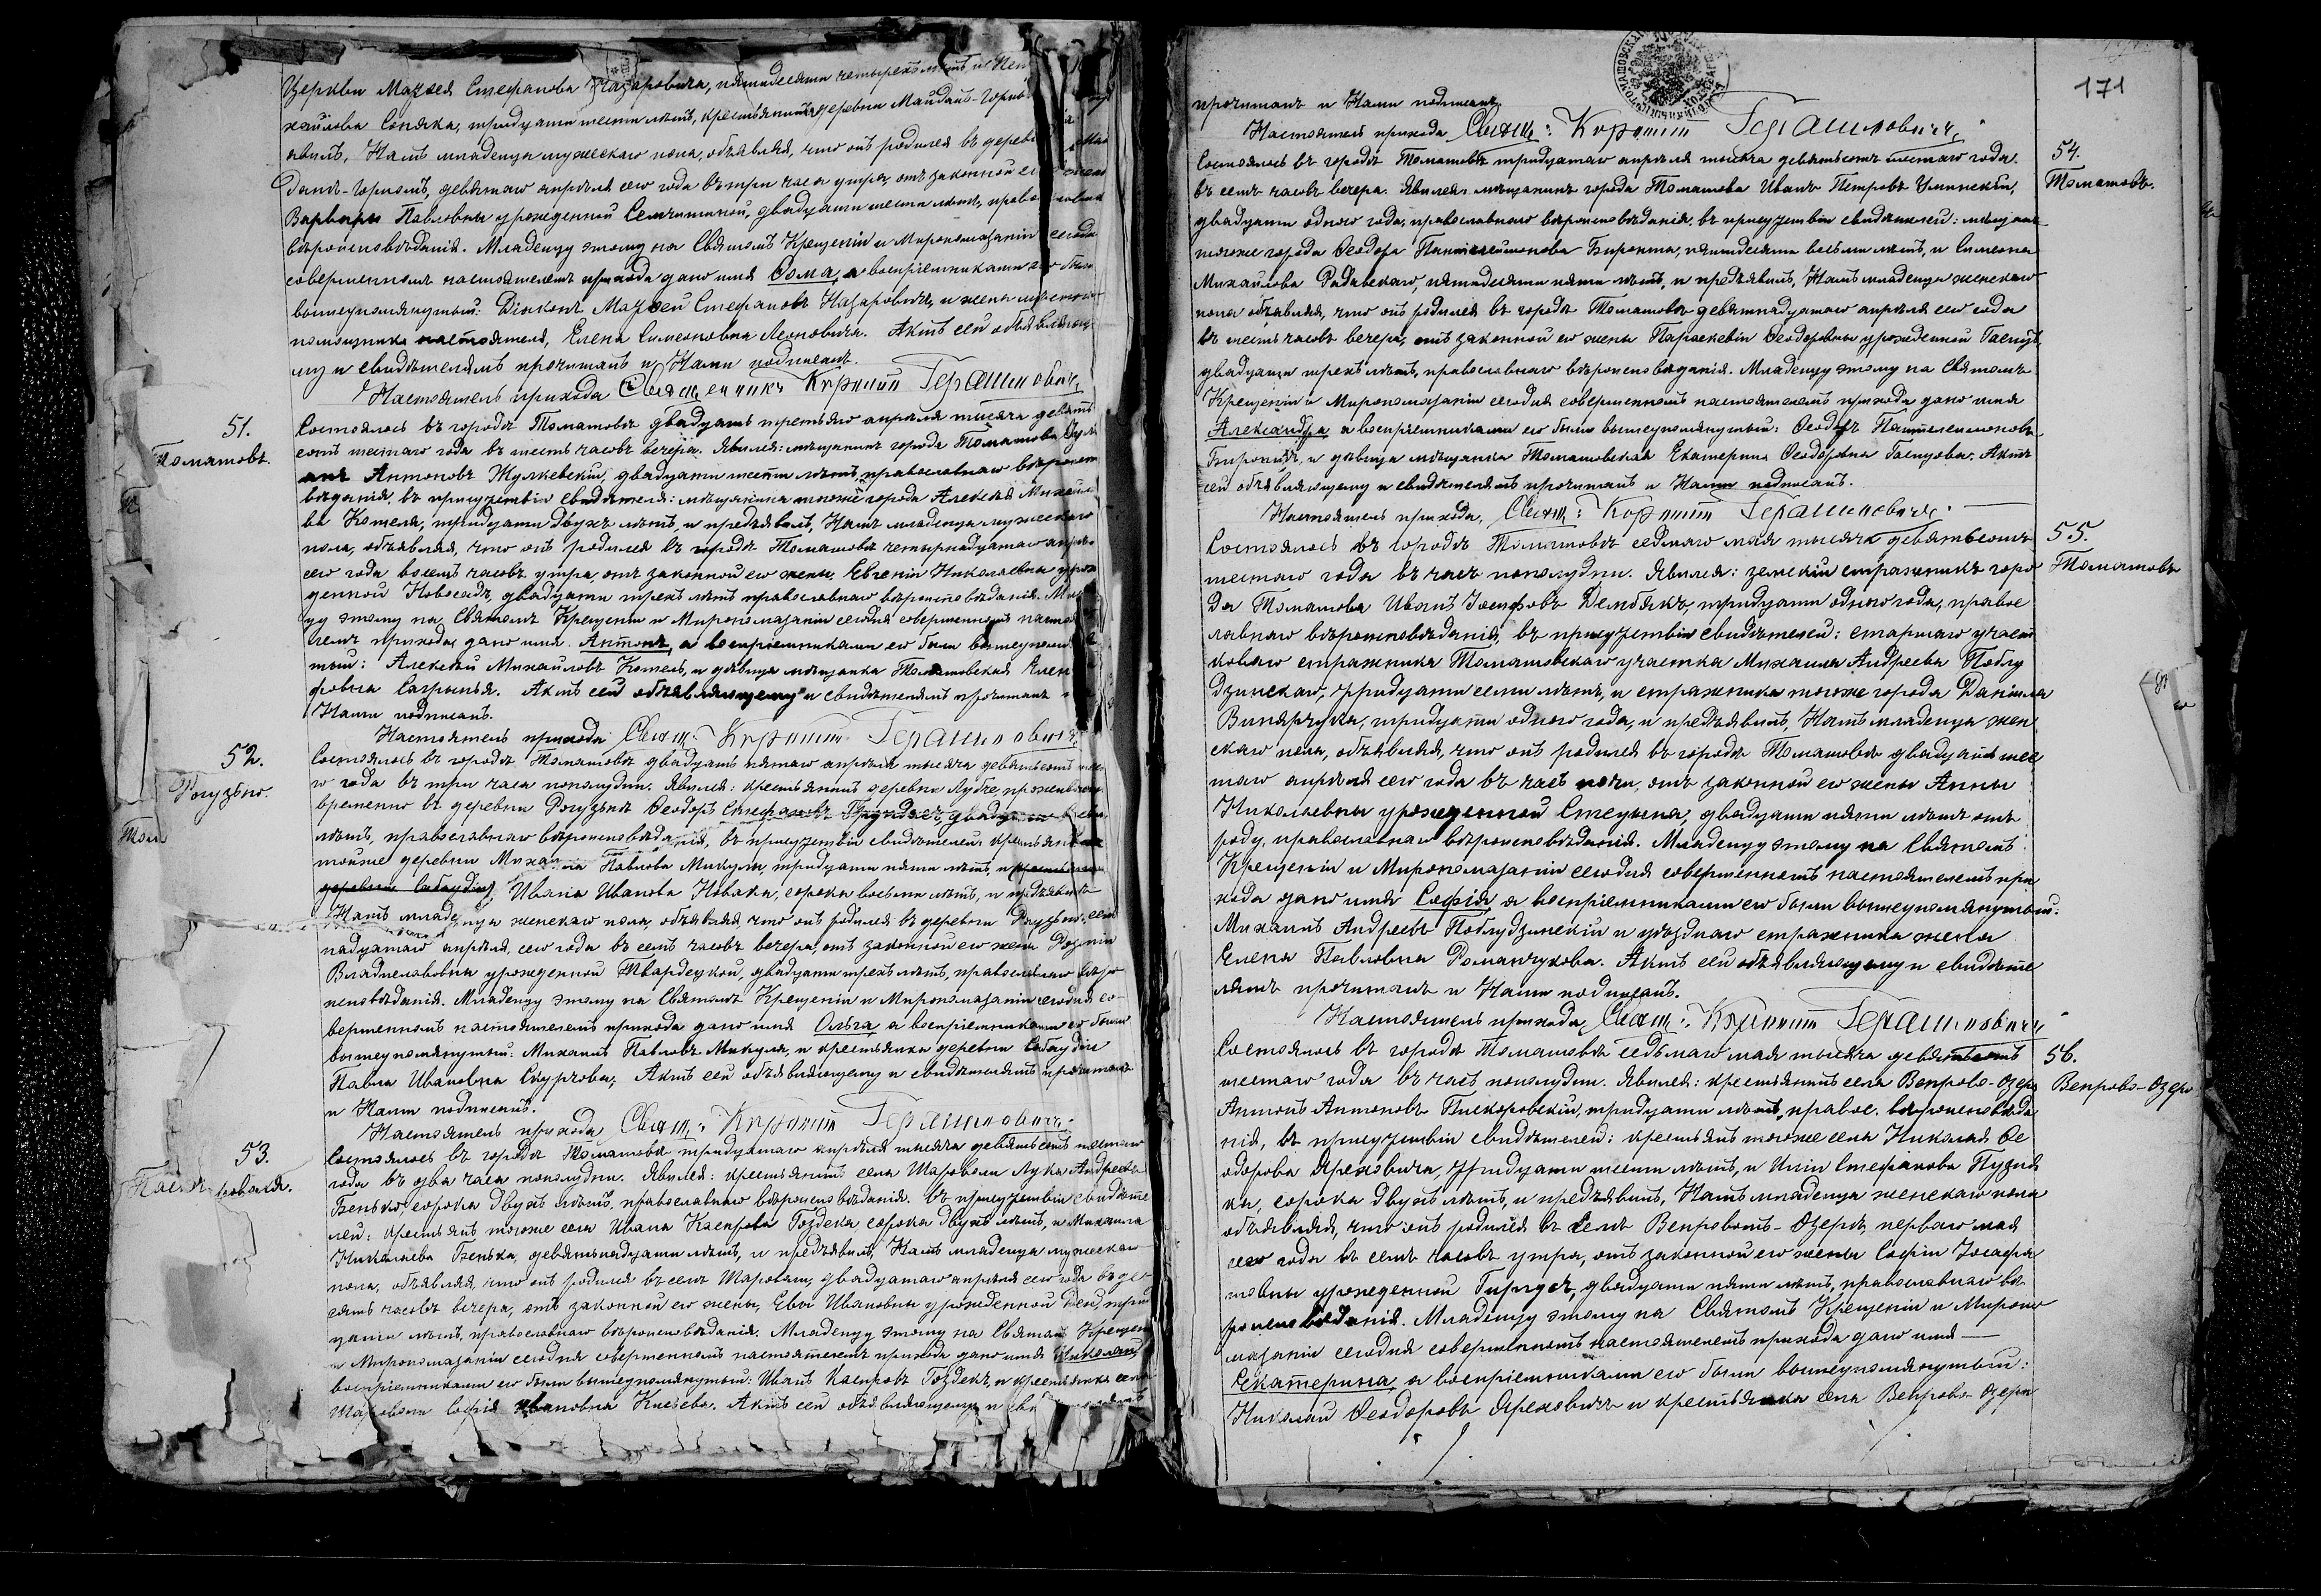 Церкви Маѳея Стефанова Назаровича, пятидесяти четырехъ лѣтъ и
хайлова Соняка, тридцати шести лѣтъ, крестьянина деревни Майданъ-Горно
явилъ, Намъ младенца мужескаго пола, объявляя, что онъ родился въ дерев
данѣ-Горномъ, девятаго апрѣля сего года въ три часа утра, отъ законной
Варвары Павловны урожденной двадцати шести лѣтъ, право
вѣроисповѣданія. Младенцу этому на Святомъ Крещеніи и Мѵропомазаніи сегодня
совершенномъ настоятелемъ прихода дано имя Ѳома, а воспріемниками его были
вышеупомянутый: Діаконъ Маѳей Стефановъ Назаровичъ, и жена
помощника настоятеля, Елена Симеоновна Леоновичъ. Актъ сей объявляюще
му и свидѣтелямъ прочитанъ и Нами подписанъ.
Настоятель прихода Священникъ Корнилій Герашиновичъ
51.
Томашовъ.
Состоялось въ городѣ Томашовѣ двадцать третьяго апрѣля тысяча девять
сотъ шестаго года въ шесть часовъ вечера. Явился: мѣщанинъ города Томашова
Антоновъ Жулкевскій, двадцати шести лѣтъ, православнаго вѣроиспо
вѣданія, въ присутствіи свидѣтеля: мѣщанина тогоже города Алексѣя Михайло
ва Котеля, тридцати двухъ лѣтъ, и предъявилъ, Намъ младенца мужескаго
пола, объявляя, что онъ родился въ городѣ Томашовѣ четырнадцатаго апрѣля
сего года восемь часовъ утра, отъ законной его жены, Евгеніи Николаевны урож
денной Новосадъ, двадцати трехъ лѣтъ православнаго вѣроисповѣданія. Мла
цу этому на Святомъ Крещеніи и Мѵропомазаніи сегодня совершенномъ настоя
лемъ прихода, дано имя. Антонъ, а воспріемниками его были вышеупомя
тый: Алексѣй Михайловъ Котель, и дѣвица мѣщанка Томашовская Елен
Актъ сей объявляющему и свидѣтелямъ прочитанъ и
Нами подписанъ.
Настоятель прихода Свящ: Корнилій Герашиновичъ
52.
Рогузьно.
Состоялось въ городѣ Томашовѣ двадцать пятаго апрѣля тысяча девятьсотъ
го года въ три часа пополудни. Явился: крестьянинъ деревни Лубче, проживающ
временно въ деревни Рогузьнѣ Ѳеодоръ Стефановъ
лѣтъ, православнаго вѣроисповѣданія, въ присутствіи свидѣтелей: крестьянина
тойже деревни Михаила Павлова Микули, тридцати пяти лѣтъ, и
Ивана Иванова Новака, сорока восьми лѣтъ, и предъявилъ
Намъ младенца женскаго пола, объявляя, что онъ родился въ деревни Рогузьно, сем
надцатаго апрѣля, сего года въ семь часовъ вечера, отъ законной его жены Розаліи
Владиславовны урожденной Твардецкой, двадцати трехъ лѣтъ, православнаго вѣро
исповѣданія. Младенцу этому на Святомъ Крещеніи и Мѵропомазаніи сегодня со-
вершенномъ настоятелемъ прихода дано имя Ольга а воспріемниками его были
вышеупомянутый: Михаилъ Павловъ Микуля, и крестьянка деревни
Павла Ивановна Актъ сей объявляющему и свидѣтелямъ прочитанъ
и Нами подписанъ.
Настоятель прихода Свящ: Корнилій Герашиновичъ.
53.
Состоялось въ городѣ Томашовѣ тридцатаго апрѣля тысяча девятьсотъ шестаго
года въ два часа пополудни. Явился: крестьянинъ села Шароволи Лука Андреевъ
Бенько, сорока двухъ лѣтъ, православнаго вѣроисповѣданія. въ присутствіи свидѣте
лей: крестьянъ тогоже села Ивана Каспрова Гоздека сорока двухъ лѣтъ, и Михаила
Николаева Бенька, девятьнадцати лѣтъ, и предъявилъ, Намъ младенца мужескаго
пола, объявляя, что онъ родился въ селѣ Шароволи, двадцатаго апрѣля сего года въ де-
сять часовъ вечера, отъ законной его жены, Евы Ивановны урожденной трид
цати лѣтъ, православнаго вѣроисповѣданія. Младенцу этому на Святомъ Крещен
и Мѵропомазаніи сегодня совершенномъ настоятелемъ прихода дано имя Николай,
воспріемниками его были вышеупомянутый: Иванъ Каспровъ Гоздекъ, и крестьянка села
Шароволи Софія Ивановна Актъ сей объявляющему и сви
171
прочитанъ и Нами подписанъ.
Настоятель прихода Свящ: Корнилій Герашиновичъ.
54.
Томашовъ.
Состоялось въ городѣ Томашовѣ тридцатаго апрѣля тысяча девятьсотъ шестаго года.
въ семь часовъ вечера. Явился: мѣщанинъ города Томашова Иванъ Петровъ
двадцати одного года, православнаго вѣроисповѣданія, въ присутствіи свидѣтелей: мѣщанъ
тогоже города Ѳеодора Пантелеймонова Биронта, пятидесяти восьми лѣтъ, и Симеона
Михайлова Радавскаго, пятидесяти пяти лѣтъ, и предъявилъ, Намъ младенца женскаго
пола объявляя, что онъ родился въ городѣ Томашовѣ девятнадцатаго апрѣля сего года
въ шесть часовъ вечера, отъ законной его жены Параскевіи Ѳеодоровны урожденной Гасюкъ,
двадцати трехъ лѣтъ, православнаго вѣроисповѣданія. Младенцу этому на Святомъ
Крещеніи и Мѵропомазаніи сегодня совершенномъ настоятелемъ прихода дано имя
Александра а воспріемниками его были вышеупомянутый: Ѳеодоръ Пантелеимоновъ
Биронтъ, и дѣвица мѣщанка Томашовская Екатерина Ѳеодоровна Актъ
сей объявляющему и свидѣтелямъ прочитанъ и Нами подписанъ.
Настоятель прихода, Свящ: Корнилій Герашиновичъ.
55.
Томашовъ
Состоялось въ городѣ Томашовѣ седмаго мая тысяча девятьсотъ
шестаго года въ часъ пополудни. Явился: земскій стражникъ горо
да Томашова Иванъ Іосифовъ Дембякъ, тридцати одного года, правос
лавнаго вѣроисповѣданія, въ присутствіи свидѣтелей: старшаго участ
коваго стражника Томашовскаго участка Михаила Андреева Поблу
дзинскаго, тридцати семи лѣтъ, и стражника тогоже города Даніила
Винярчука, тридцати одного года, и предъявилъ, Намъ младенца жен
скаго пола, объявляя, что онъ родился въ городѣ Томашовѣ двадцать шес
таго апрѣля сего года въ часъ ночи, отъ законной его жены Анны
Николаевны урожденной Стецюка, двадцати пяти лѣтъ отъ
роду, православнаго вѣроисповѣданія. Младенцу этому на Святомъ
Крещеніи и Мѵропомазаніи сегодня совершенномъ настоятелемъ при
хода дано имя Софія а воспріемниками его были вышеупомянутый:
Михаилъ Андреевъ Поблудзинскій и уѣзднаго стражника жена
Елена Павловна Романчукова. Актъ сей объявляющему и свидѣте
лямъ прочитанъ и Нами подписанъ.
Настоятель прихода, Свящ: Корнилій Герашиновичъ
56.
Вепрово-Озеро
Состоялось въ городѣ Томашовѣ седьмаго мая тысяча девятьсотъ
шестаго года въ часъ пополудни. Явился: крестьянинъ села Вепрово-Озеро
Антонъ Антоновъ Пискоровскій, тридцати лѣтъ, правос. вѣроисповѣда
нія, въ присутствіи свидѣтелей: крестьянъ тогоже села Николая Ѳе
одорова Яреховича, тридцати шести лѣтъ, и Иліи Стефанова Пузня
ка, сорока двухъ лѣтъ, и предъявилъ, Намъ младенца женскаго пола
объявляя, что онъ родился въ селѣ Вепровомъ-Озерѣ, перваго мая
сего года въ семь часовъ утра, отъ законной его жены Софіи Іосафа
товны урожденной двадцати пяти лѣтъ, православнаго вѣ
роисповѣданія. Младенцу этому на Святомъ Крещеніи и Мѵропо
мазаніи сегодня совершенномъ настоятелемъ прихода дано имя
Екатерина, а воспріемниками его были вышеупомянутый:
Николай Ѳеодоровъ Яреховичъ и крестьянка села Вепрово-Озера